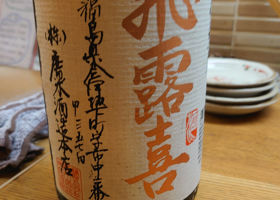 飛露喜
福島県会津坂下町字市中二番
甲三五七四
(株)廣木酒造本店